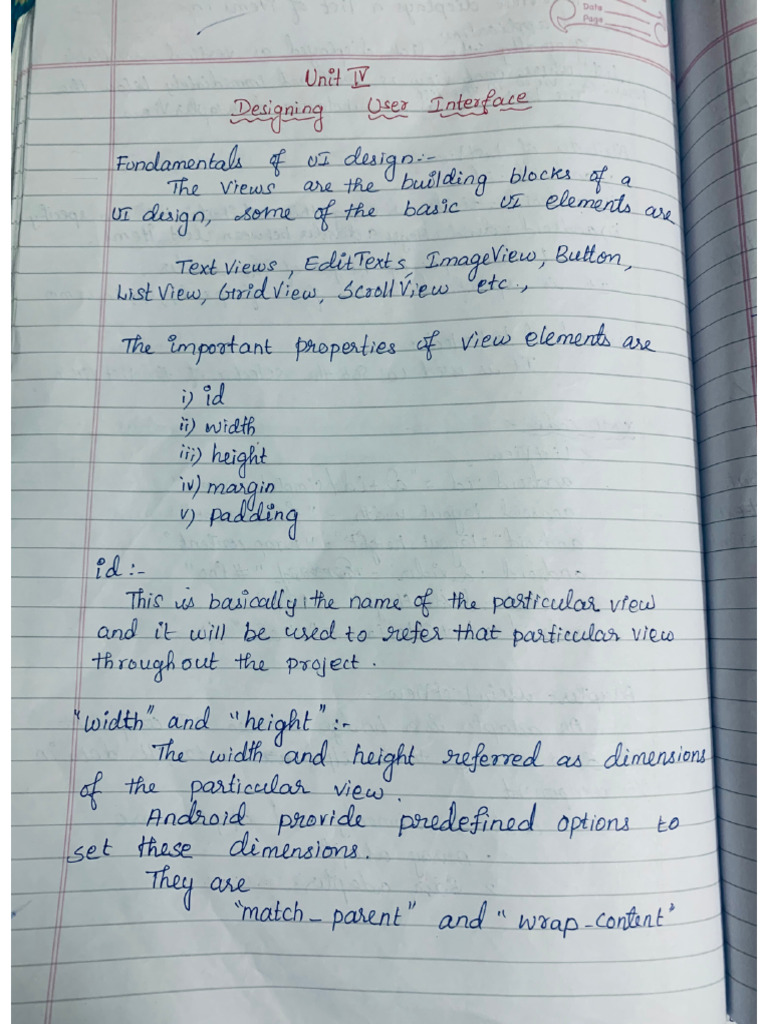 Date
Page
Unit IV
Designing User Interface
Fundamentals of UI design:-
The Views are the building blocks of a
UI design, some of the basic UI elements are
Text Views, EditTexts, ImageView, Button,
List View, Grid View, Scroll View etc.,
The important properties of view elements are
i) id
ii) width
iii) height
iv) margin
v) padding
id :-
This is basically the name of the particular view
and it will be used to refer that particular view
throughout the project.
"width" and "height" :-
The width and height referred as dimensions
of the particular view.
Android provide predefined options to
set these dimensions.
They are
"match_parent" and "wrap-content"